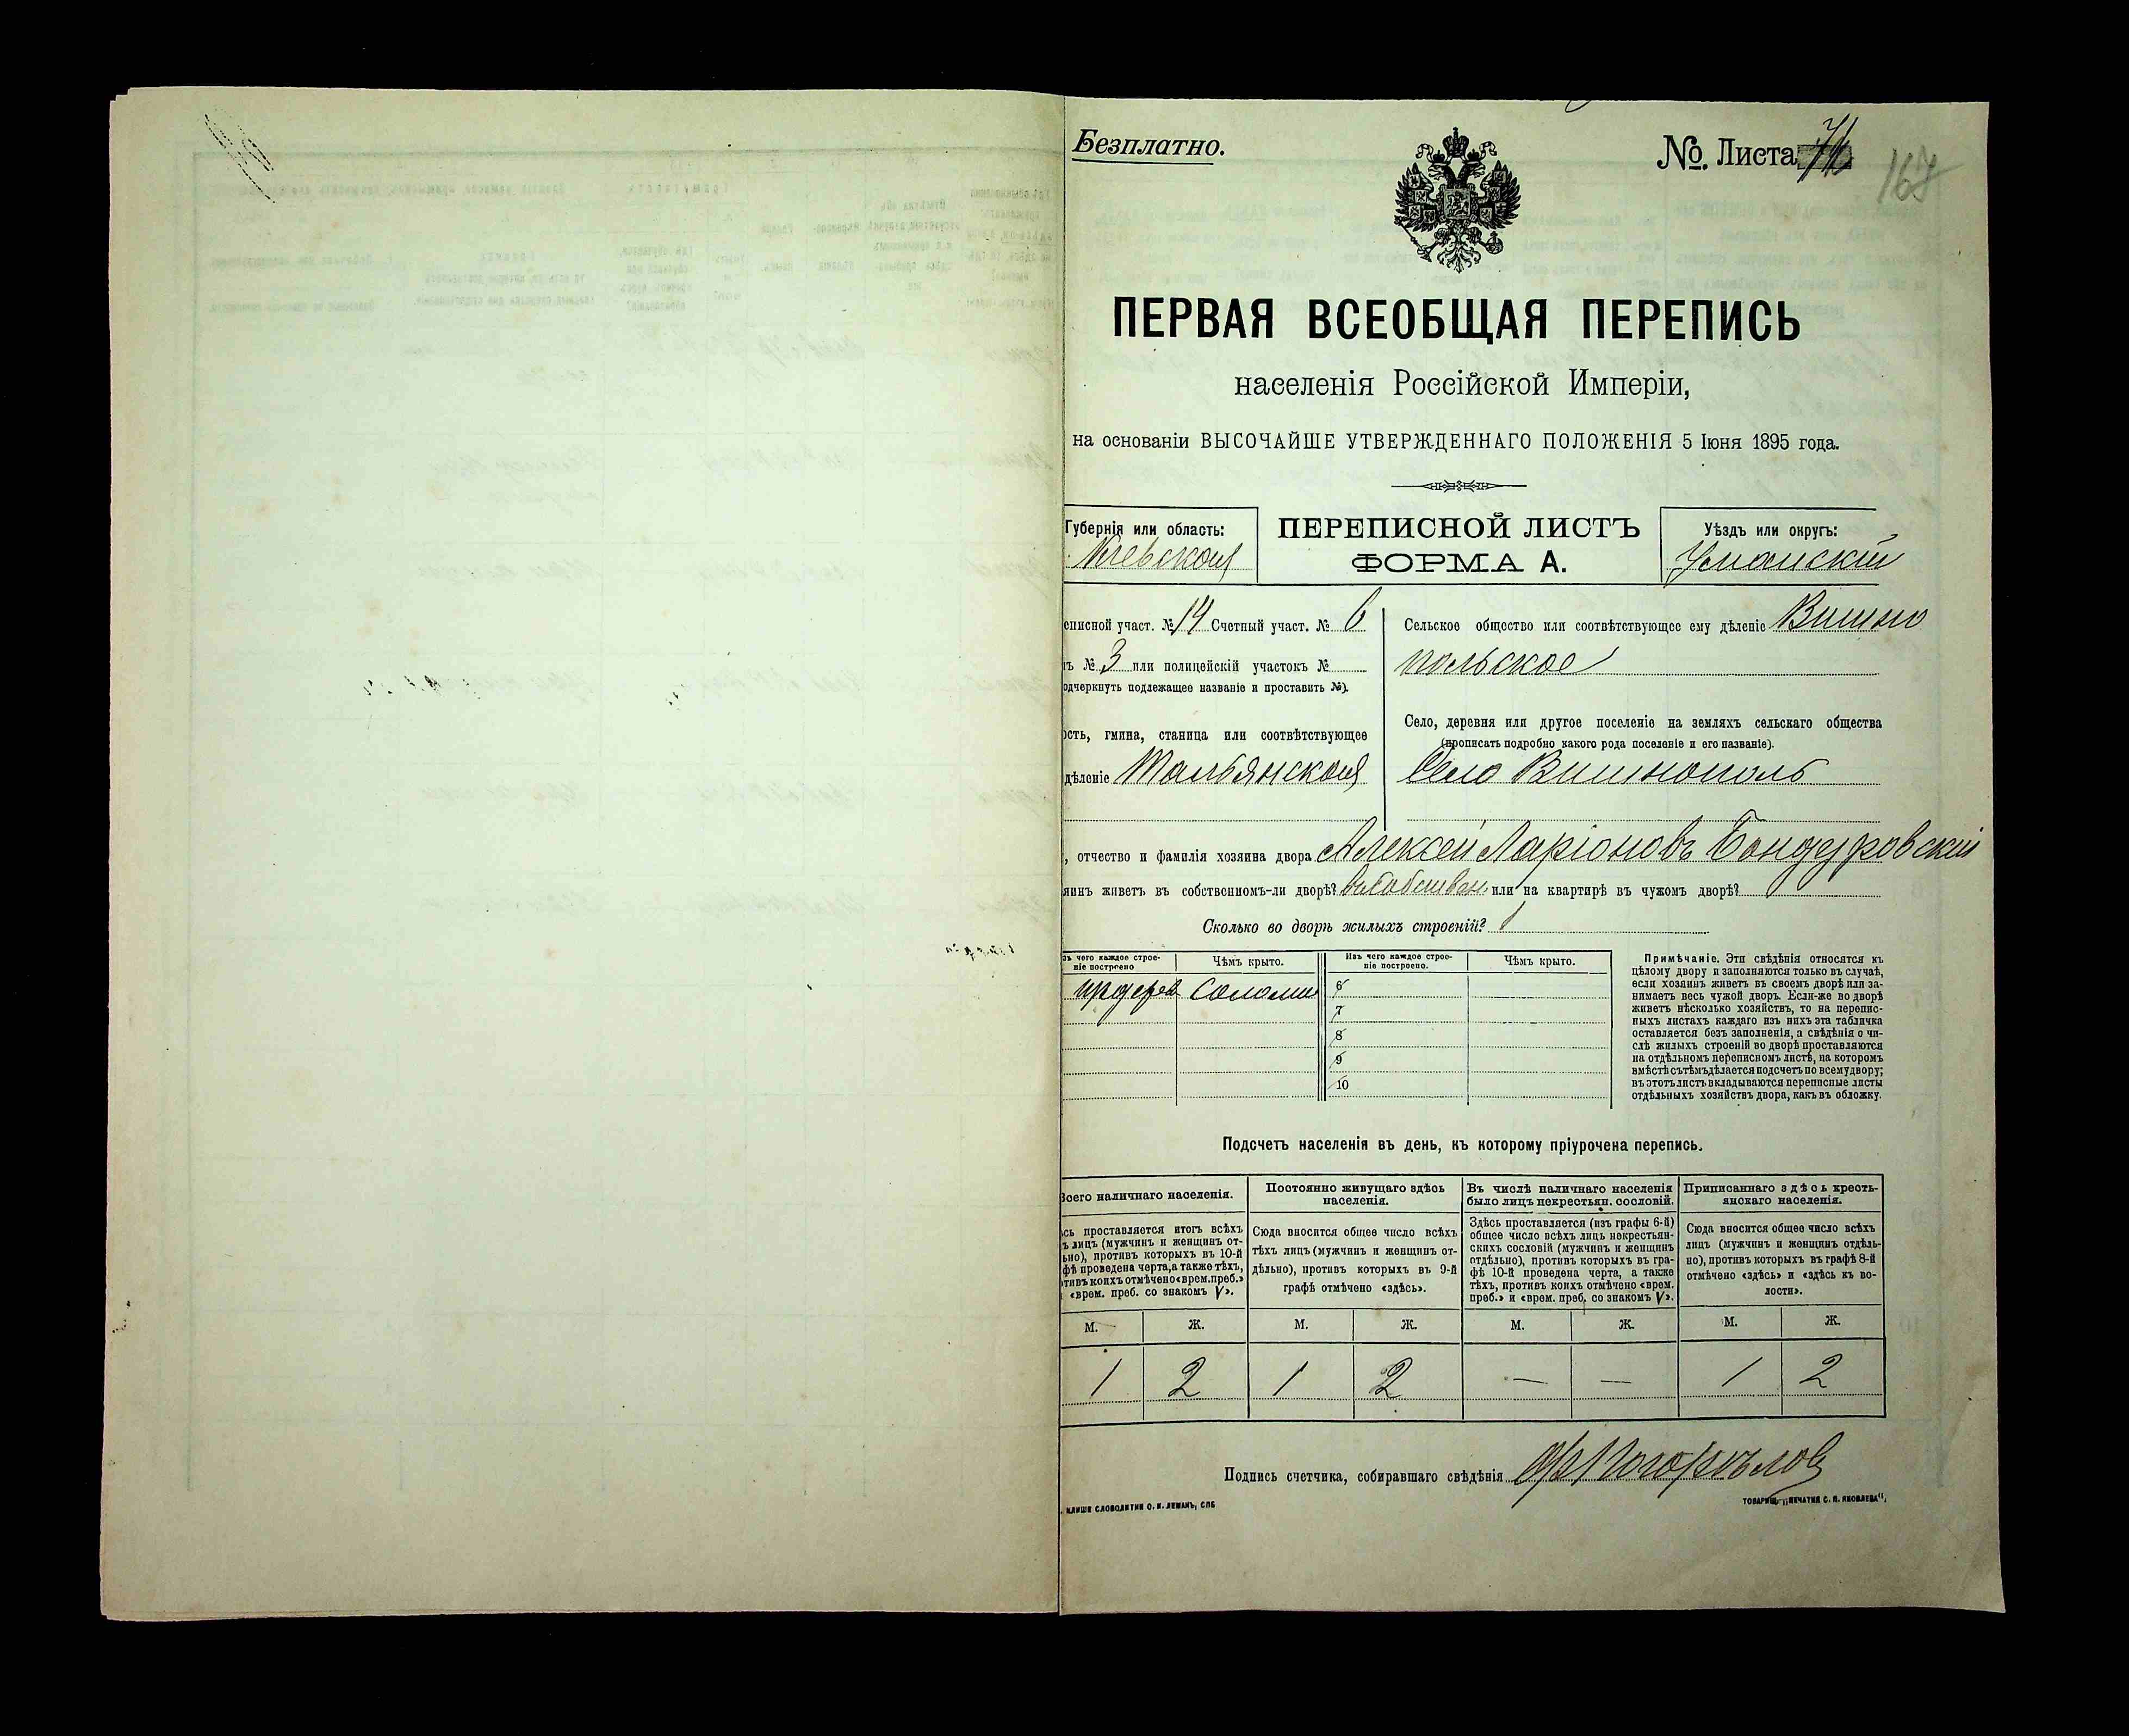 Безплатно.
№ Листа 74
167
ПЕРВАЯ ВСЕОБЩАЯ ПЕРЕПИСЬ
населенія Россійской Имперіи,
на основаніи ВЫСОЧАЙШЕ УТВЕРЖДЕННАГО ПОЛОЖЕНІЯ 5 Іюня 1895 года.
Губернія или область:
Кіевская
ПЕРЕПИСНОЙ ЛИСТЪ
ФОРМА А.
Уѣздъ или округъ:
Уманскій
еписной участ. № 14 Счетный участ. № 6
ъ № 3 или полицейскій участокъ №
одчеркнуть подлежащее названіе и проставить №).
ость, гмина, станица или соотвѣтствующее
дѣленіе Тальянская
Сельское общество или соотвѣтствующее ему дѣленіе Вишно
польское
Село, деревня или другое поселеніе на земляхъ сельскаго общества
(прописать подробно какого рода поселеніе и его названіе).
Село Вишнополь
, отчество и фамилія хозяина двора Алексей Ларіоновъ Бондуровскій
яинъ живетъ въ собственномъ-ли дворѣ? въ собствен. или на квартирѣ въ чужомъ дворѣ?
Сколько во дворѣ жилыхъ строеній? 1
зъ чего каждое строе-
ніе построено
Чѣмъ крыто.
Изъ чего каждое строе-
ніе построено.
Чѣмъ крыто.
Соломы
6
7
8
9
10
Примѣчаніе. Эти свѣдѣнія относятся къ
цѣлому двору и заполняются только въ случаѣ,
если хозяинъ живетъ въ своемъ дворѣ или за-
нимаетъ весь чужой дворъ. Если-же во дворѣ
живетъ нѣсколько хозяйствъ, то на перепис-
ныхъ листахъ каждаго изъ нихъ эта табличка
оставляется безъ заполненія, а свѣдѣнія о чи-
слѣ жилыхъ строеній во дворѣ проставляются
на отдѣльномъ переписномъ листѣ, на которомъ
вмѣстѣ съ тѣмъ дѣлается подсчетъ по всему двору;
въ этотъ листъ вкладываются переписные листы
отдѣльныхъ хозяйствъ двора, какъ въ обложку.
Подсчетъ населенія въ день, къ которому пріурочена перепись.
Всего наличнаго населенія.
сь проставляется итогъ всѣхъ
ъ лицъ (мужчинъ и женщинъ от-
ьно), противъ которыхъ въ 10-й
фѣ проведена черта, а также тѣхъ,
тивъ коихъ отмѣчено «врем. преб.»
«врем. преб. со знакомъ V».
Постоянно живущаго здѣсь
населенія.
Сюда вносится общее число всѣхъ
тѣхъ лицъ (мужчинъ и женщинъ от-
дѣльно), противъ которыхъ въ 9-й
графѣ отмѣчено «здѣсь».
Въ числѣ наличнаго населенія
было лицъ некрестьян. сословій.
Здѣсь проставляется (изъ графы 6-й)
общее число всѣхъ лицъ некрестьян-
скихъ сословій (мужчинъ и женщинъ
отдѣльно), противъ которыхъ въ гра-
фѣ 10-й проведена черта, а также
тѣхъ, противъ коихъ отмѣчено «врем.
преб.» и «врем. преб. со знакомъ V».
Приписаннаго здѣсь кресть-
янскаго населенія.
Сюда вносится общее число всѣхъ
лицъ (мужчинъ и женщинъ отдѣль-
но), противъ которыхъ въ графѣ 8-й
отмѣчено «здѣсь» и «здѣсь къ во-
лости».
М. Ж. М. Ж. М. Ж. М. Ж.
1 2 1 2 — — 1 2
Подпись счетчика, собиравшаго свѣдѣнія Погорѣлов
КЛИШЕ СЛОВОЛИТНИ О. И. ЛЕМАНЪ, СПБ
ТОВАРИЩ. „ПЕЧАТНЯ С. П. ЯКОВЛЕВА“.